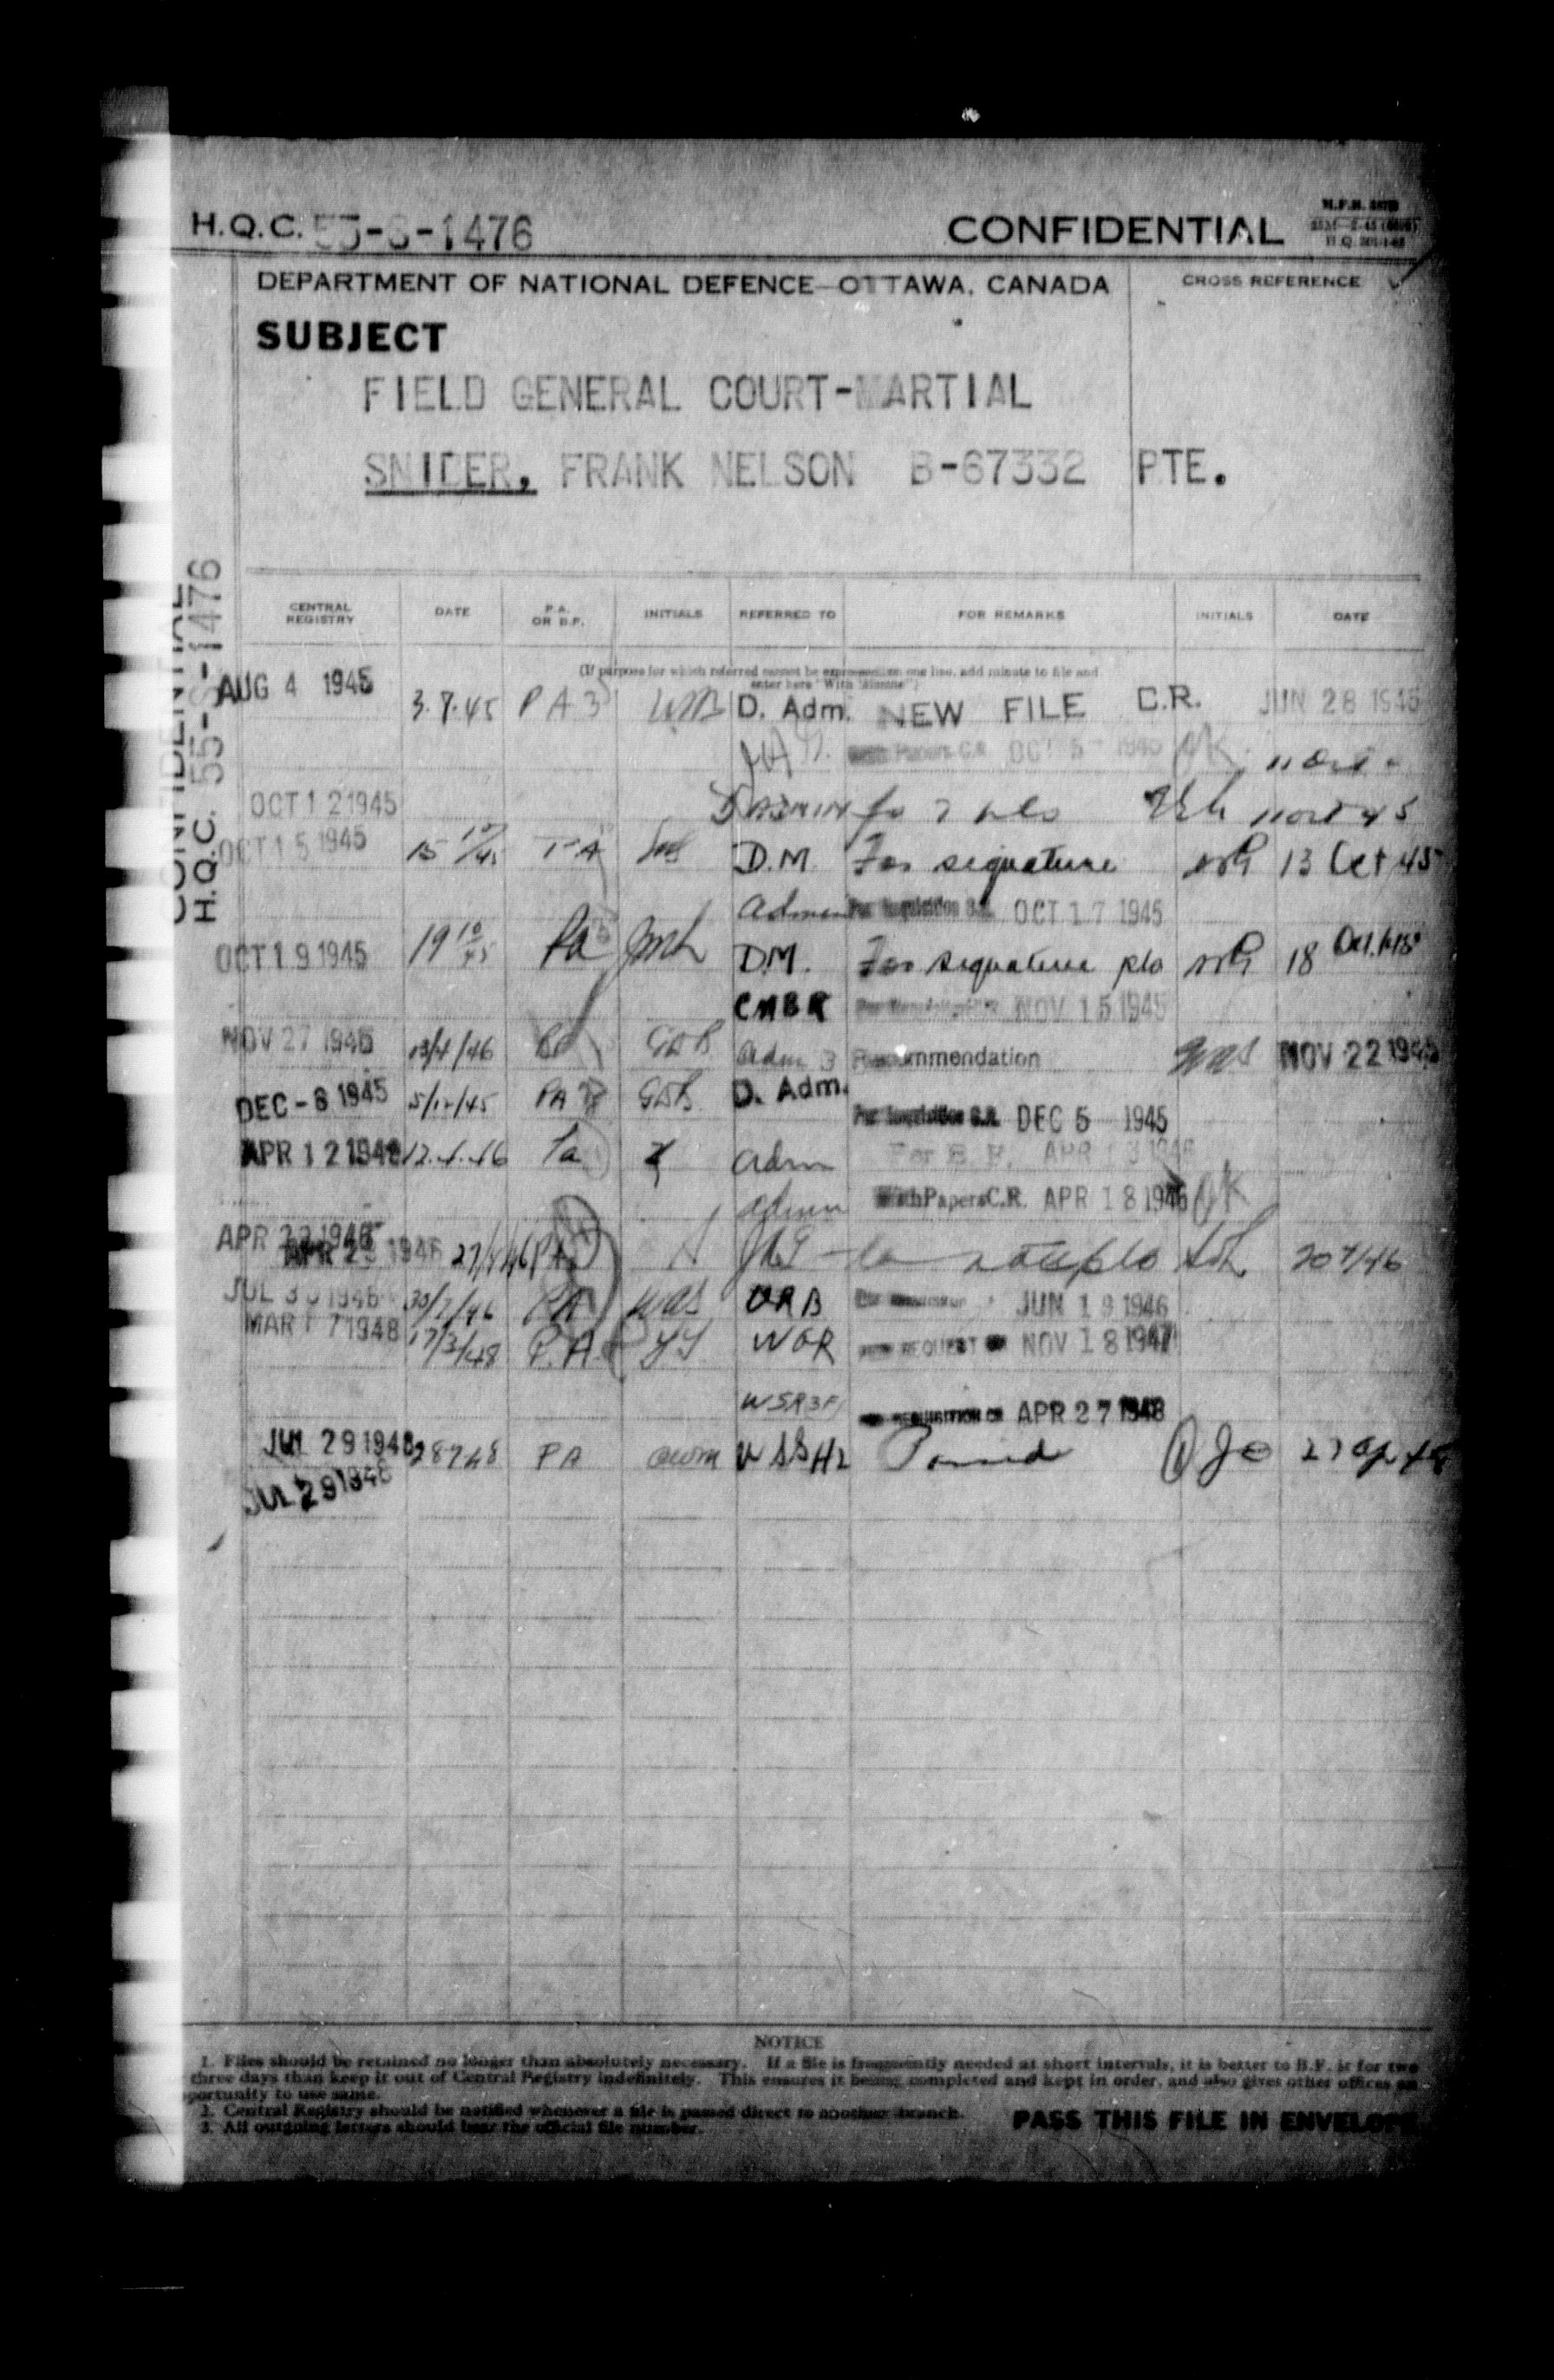 H.Q.C. 55-S-1476 CONFIDENTIAL
DEPARTMENT OF NATIONAL DEFENCE—OTTAWA, CANADA CROSS REFERENCE
SUBJECT
FIELD GENERAL COURT-MARTIAL
SNIDER, FRANK NELSON B-67332 PTE.
CONFIDENTIAL
H.Q.C. 55-S-1476
CENTRAL REGISTRY DATE P.A. OR B.F. INITIALS REFERRED TO FOR REMARKS INITIALS DATE
(If purpose for which referred cannot be expressed on one line, add minute to file and
enter here "With Minute")
AUG 4 1945 3.7.45 PA D. Adm. NEW FILE C.R. JUN 28 1945
With Papers C.R. OCT 5 1945 OK
OCT 12 1945
OCT 15 1945 15 10/45 PA D.M. For signature 13 Oct 45
Admin For Requisition C.R. OCT 17 1945
OCT 19 1945 19 10/45 Pa D.M. For signature 18 Oct.
CMBR NOV 15 1945
NOV 27 1945 GDB Adm 3 Recommendation NOV 22 1945
DEC - 6 1945 5/12/45 PA GDB D. Adm.
For Requisition C.R. DEC 5 1945
APR 12 1946 12.4.46 Pa Adm For B.F. APR 13 1946
Admin With Papers C.R. APR 18 1946 OK
APR 23 1946 27/4/46 PA 20 4/46
JUL 30 1946 30/7/46 PA WAS JUN 19 1946
MAR 17 1948 17/3/48 P.A. WOR REQUEST NOV 18 1947
WSR3F REQUISITION CR APR 27 1948
JUL 29 1948 28 7 48 PA Passed 27 Apr 48
JUL 29 1948
NOTICE
1. Files should be retained no longer than absolutely necessary. If a file is frequently needed at short intervals, it is better to B.F. it for two
three days than keep it out of Central Registry indefinitely. This ensures it being completed and kept in order, and also gives other offices an
portunity to use same.
2. Central Registry should be notified whenever a file is passed direct to another branch.
3. All outgoing letters should bear the official file number. PASS THIS FILE IN ENVELOPE